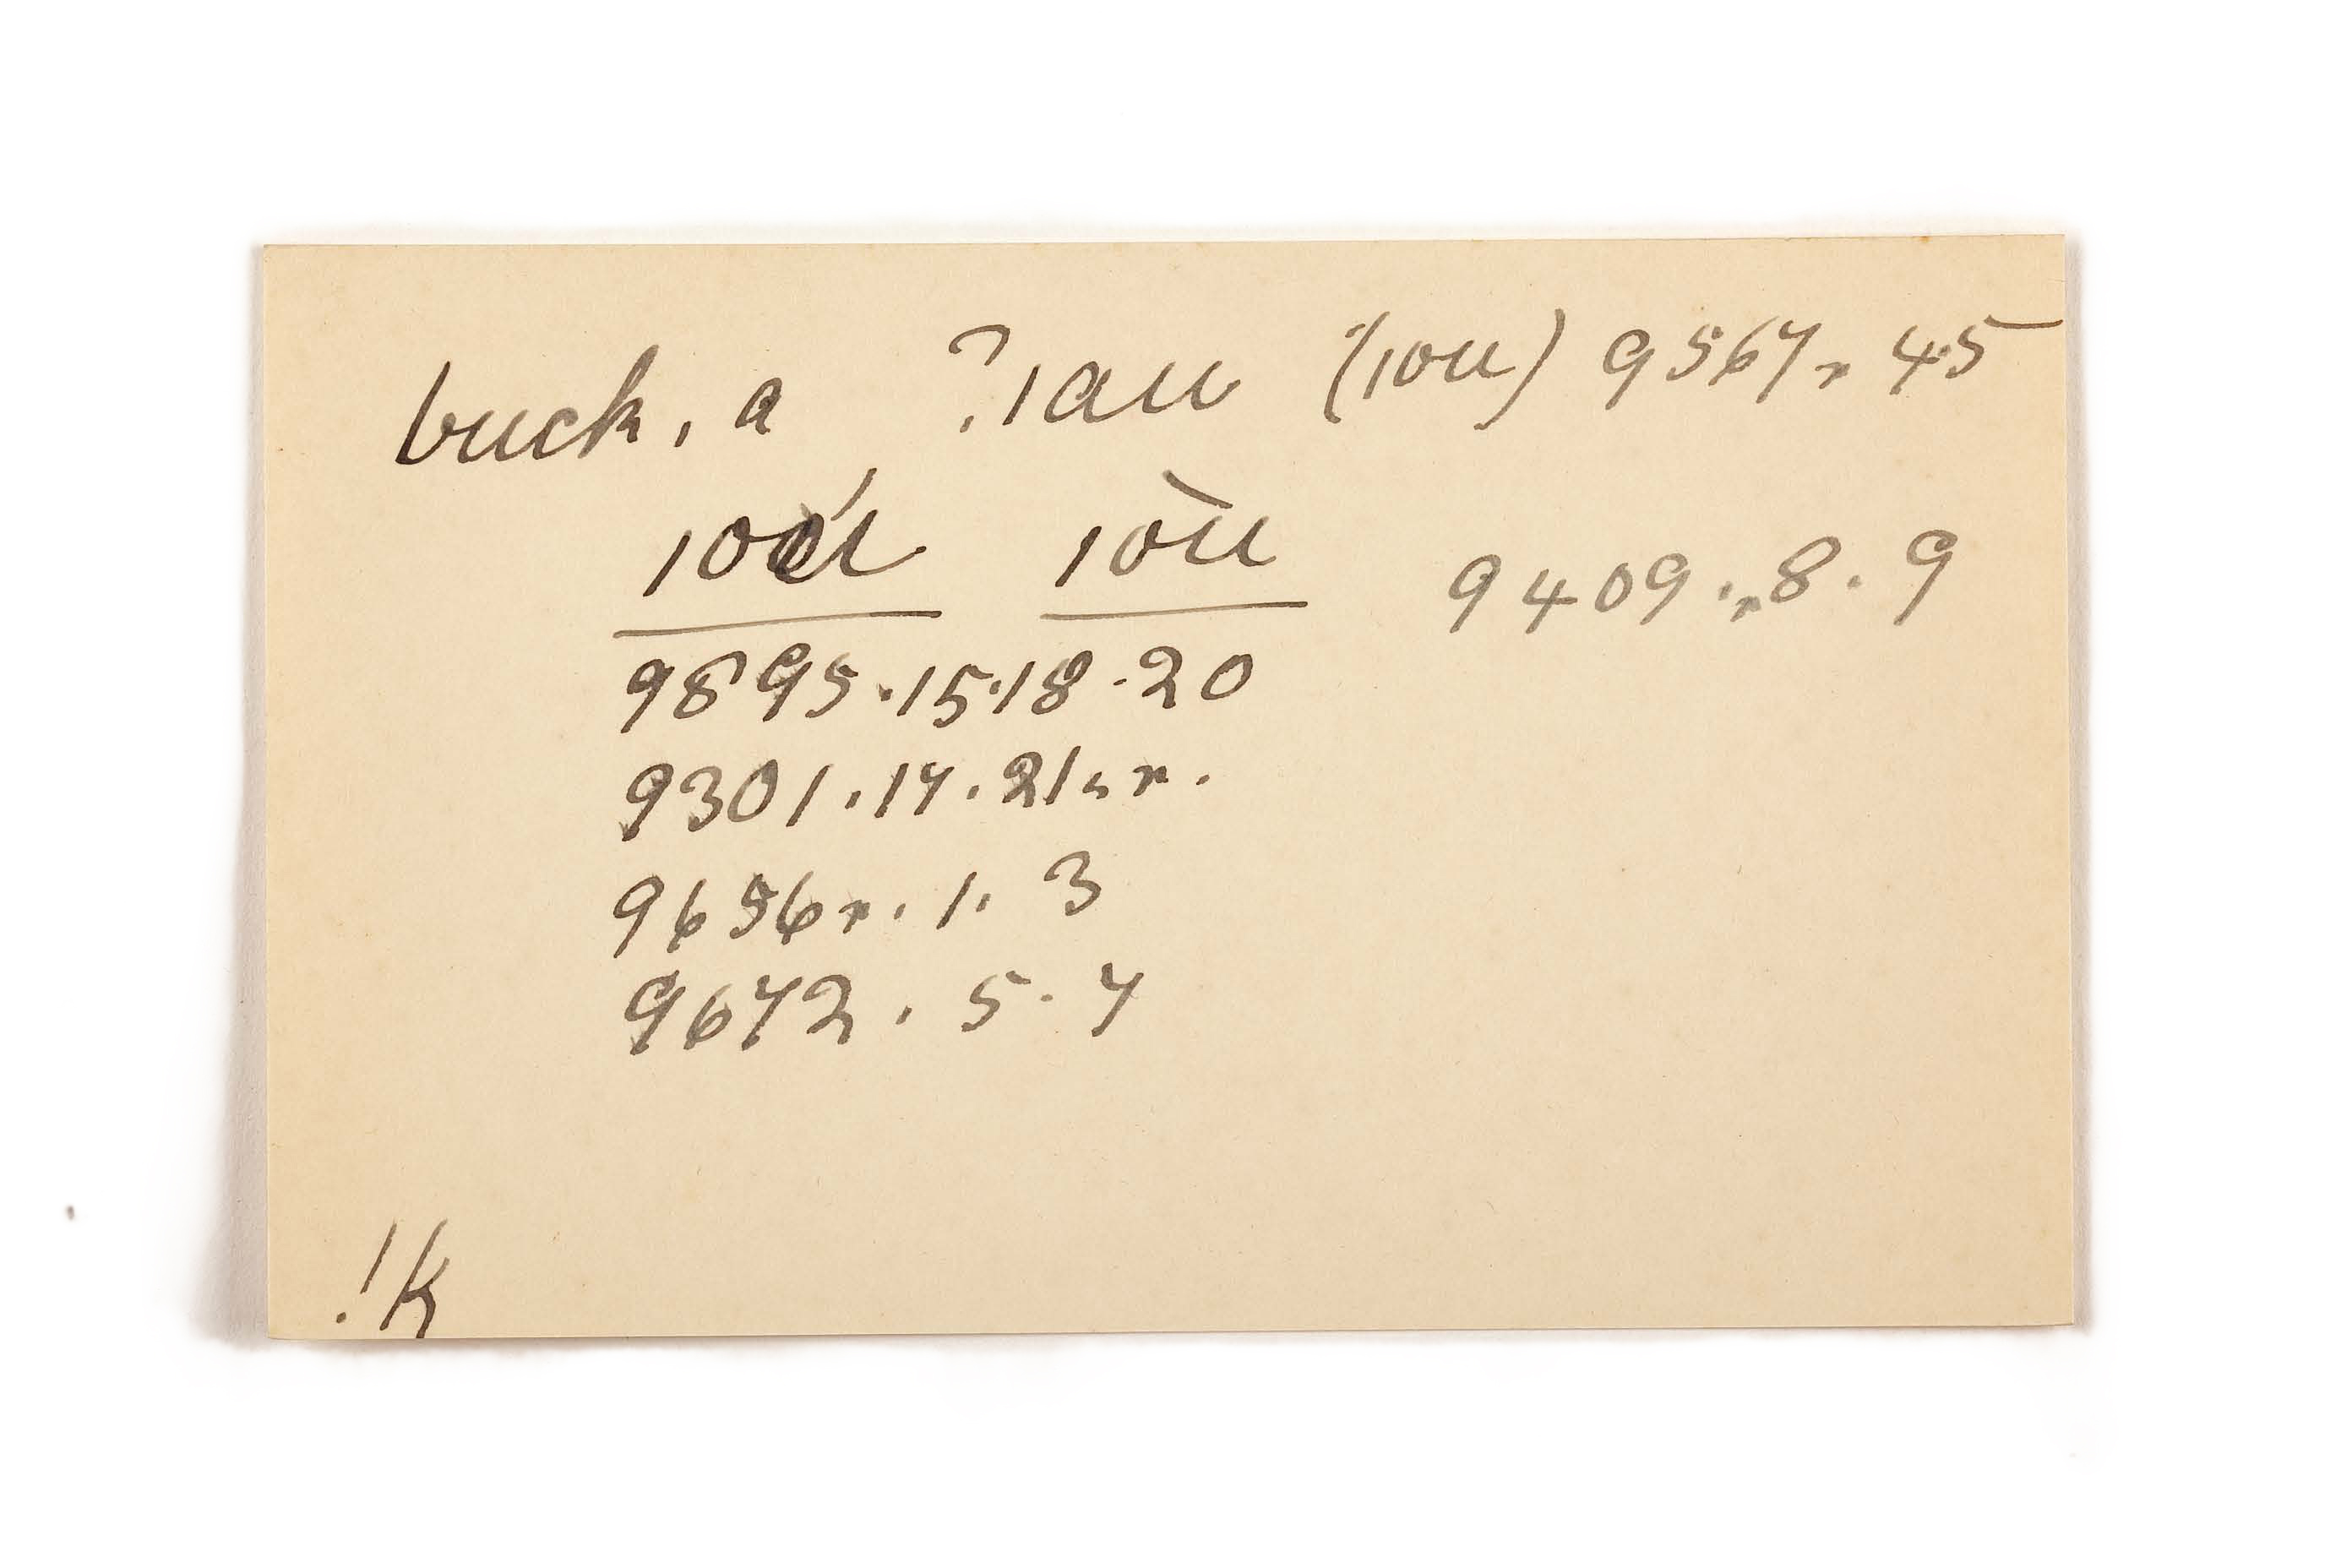 buck, a ?ıau (ıou) 9567r. 45
ıoú ıòu 9409.r.8.9
9895.15.18.20
9301.17.21.r.
9656r. 1. 3
9672. 5. 7
!k